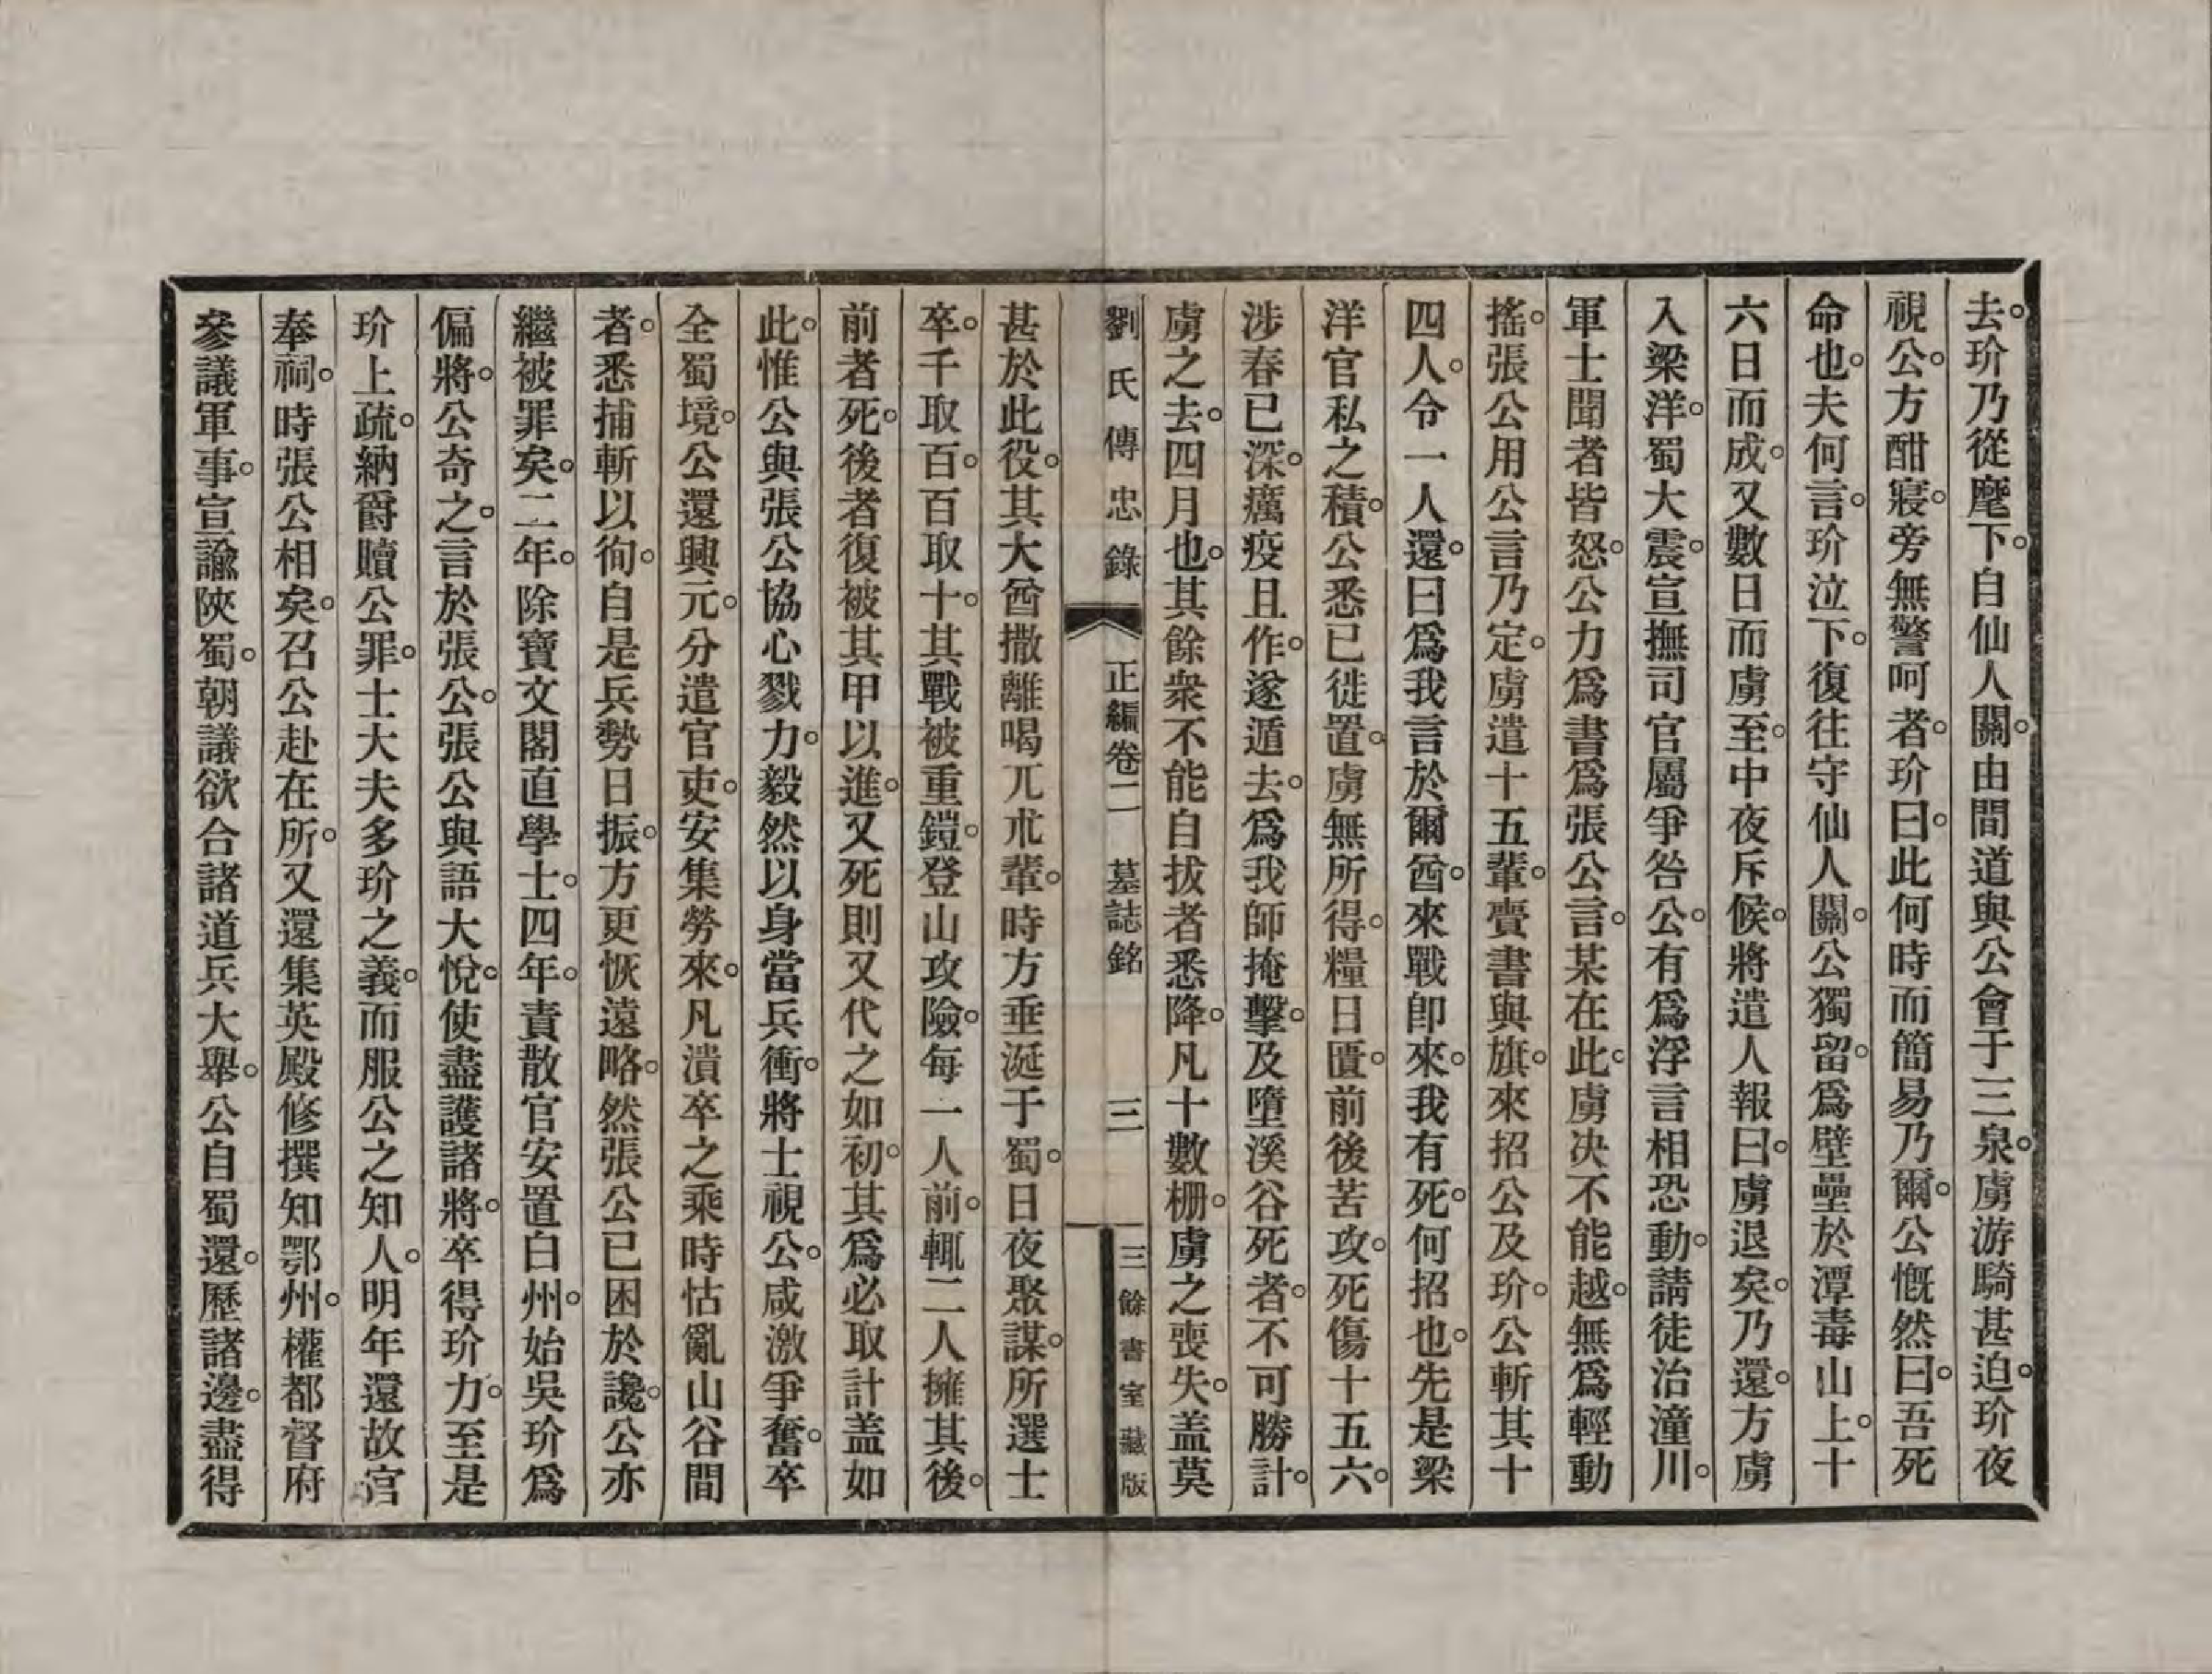 去。玠乃從麾下。自仙人關。由間道與公會于三泉。虜游騎甚迫。玠夜
視公。方酣寢。旁無警呵者。玠曰。此何時而簡易乃爾。公慨然曰。吾死
命也。夫何言。玠泣下。復往守仙人關。公獨留。爲壁壘於潭毒山上。十
六日而成。又數日而虜至。中夜斥候。將遣人報曰。虜退矣。乃還。方虜
入梁洋。蜀大震。宣撫司官屬爭咎公。有爲浮言相恐動。請徒治潼川。
軍士聞者皆怒。公力爲書爲張公言。某在此。虜决不能越。無爲輕動
搖。張公用公言乃定。虜遣十五輩。賫書與旗。來招公及玠。公斬其十
四人。令一人還。曰爲我言於爾酋。來戰卽來。我有死。何招也。先是梁
洋官私之積。公悉已徙置。虜無所得。糧日匱。前後苦攻。死傷十五六。
涉春已深。癘疫且作。遂遁去。爲我師掩擊。及墮溪谷死者。不可勝計。
虜之去。四月也。其餘衆不能自拔者悉降。凡十數栅。虜之喪失。盖莫
劉氏傳忠錄 正編卷二 墓誌銘 三 三餘書室藏版
甚於此役。其大酋撒離喝兀朮輩。時方垂涎于蜀。日夜聚謀。所選士
卒。千取百。百取十。其戰被重鎧。登山攻險。每一人前。輒二人擁其後。
前者死。後者復被其甲以進。又死則又代之如初。其爲必取計盖如
此。惟公與張公協心戮力。毅然以身當兵衝。將士視公。咸激爭奮。卒
全蜀境。公還興元。分遣官吏。安集勞來。凡潰卒之乘時怙亂山谷間
者。悉捕斬以徇。自是兵勢日振。方更恢遠略。然張公已困於讒。公亦
繼被罪矣。二年。除寶文閣直學士。四年。責散官安置白州。始吳玠爲
偏將。公奇之。言於張公。張公與語大悅。使盡護諸將。卒得玠力。至是
玠上疏。納爵贖公罪。士大夫多玠之義。而服公之知人。明年還故官
奉祠。時張公相矣。召公赴在所。又還集英殿修撰知鄂州。權都督府
參議軍事。宣諭陝蜀。朝議欲合諸道兵大舉。公自蜀還。歷諸邊。盡得